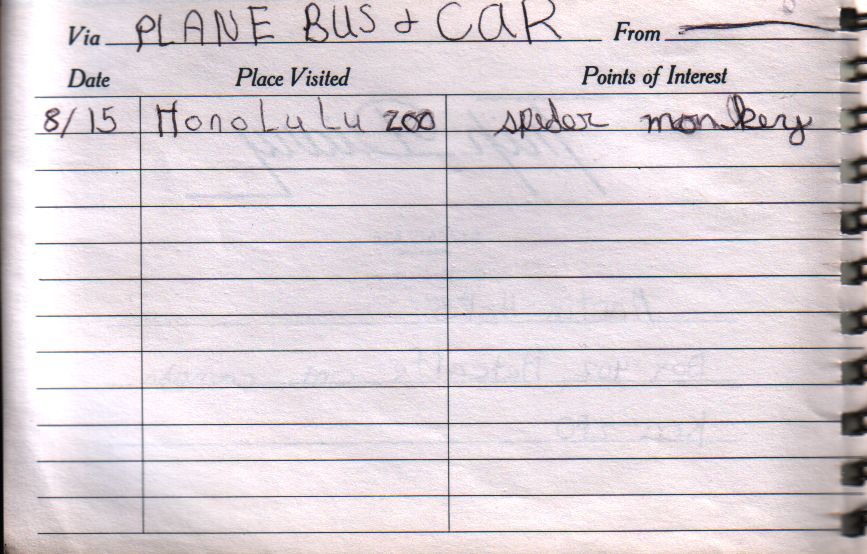 Via PLANE BUS & CAR From
Date Place Visited Points of Interest
8/15 HonoLuLu zoo spider monkey